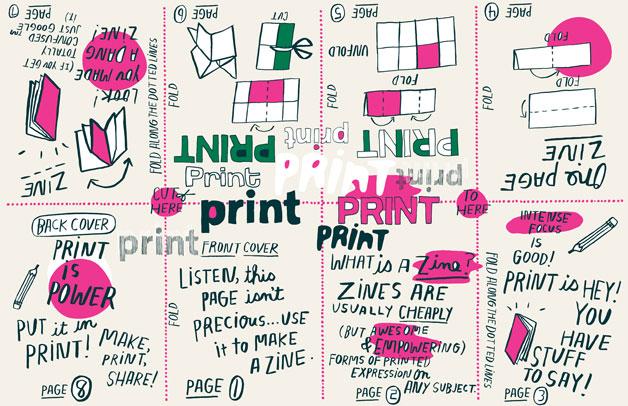 7 PAGE
ZINE
LOOK!
YOU MADE
A DANG
ZINE
(IF YOU GET
TOTALLY
CONFUSED
JUST GOOGLE
FOLD ALONG THE DOTTED LINES
6 PAGE
CUT
FOLD
5 PAGE
UNFOLD
FOLD
4 PAGE
FOLD
FOLD
One PAGE
ZINE
FOLD
PRINT
print
PRINT
Print
PRINT
print
CUT
HERE
print
PRINT
TO
HERE
print
PRINT
BACK COVER
PRINT
is
POWER
PUT it in
PRINT!
MAKE,
PRINT,
SHARE!
PAGE 8
FOLD
FRONT COVER
LISTEN, this
PAGE isn't
PRECIOUS...USE
it to MAKE
A ZINE.
PAGE 1
WHAT is A Zine?
ZINES ARE
USUALLY CHEAPLY
(BUT AWESOME
& EMPOWERING)
FORMS OF PRINTED
EXPRESSION on
ANY SUBJECT.
PAGE 2
FOLD ALONG THE DOTTED LINES
INTENSE
FOCUS
is
GOOD!
PRINT is HEY!
YOU
HAVE
STUFF
TO SAY!
PAGE 3